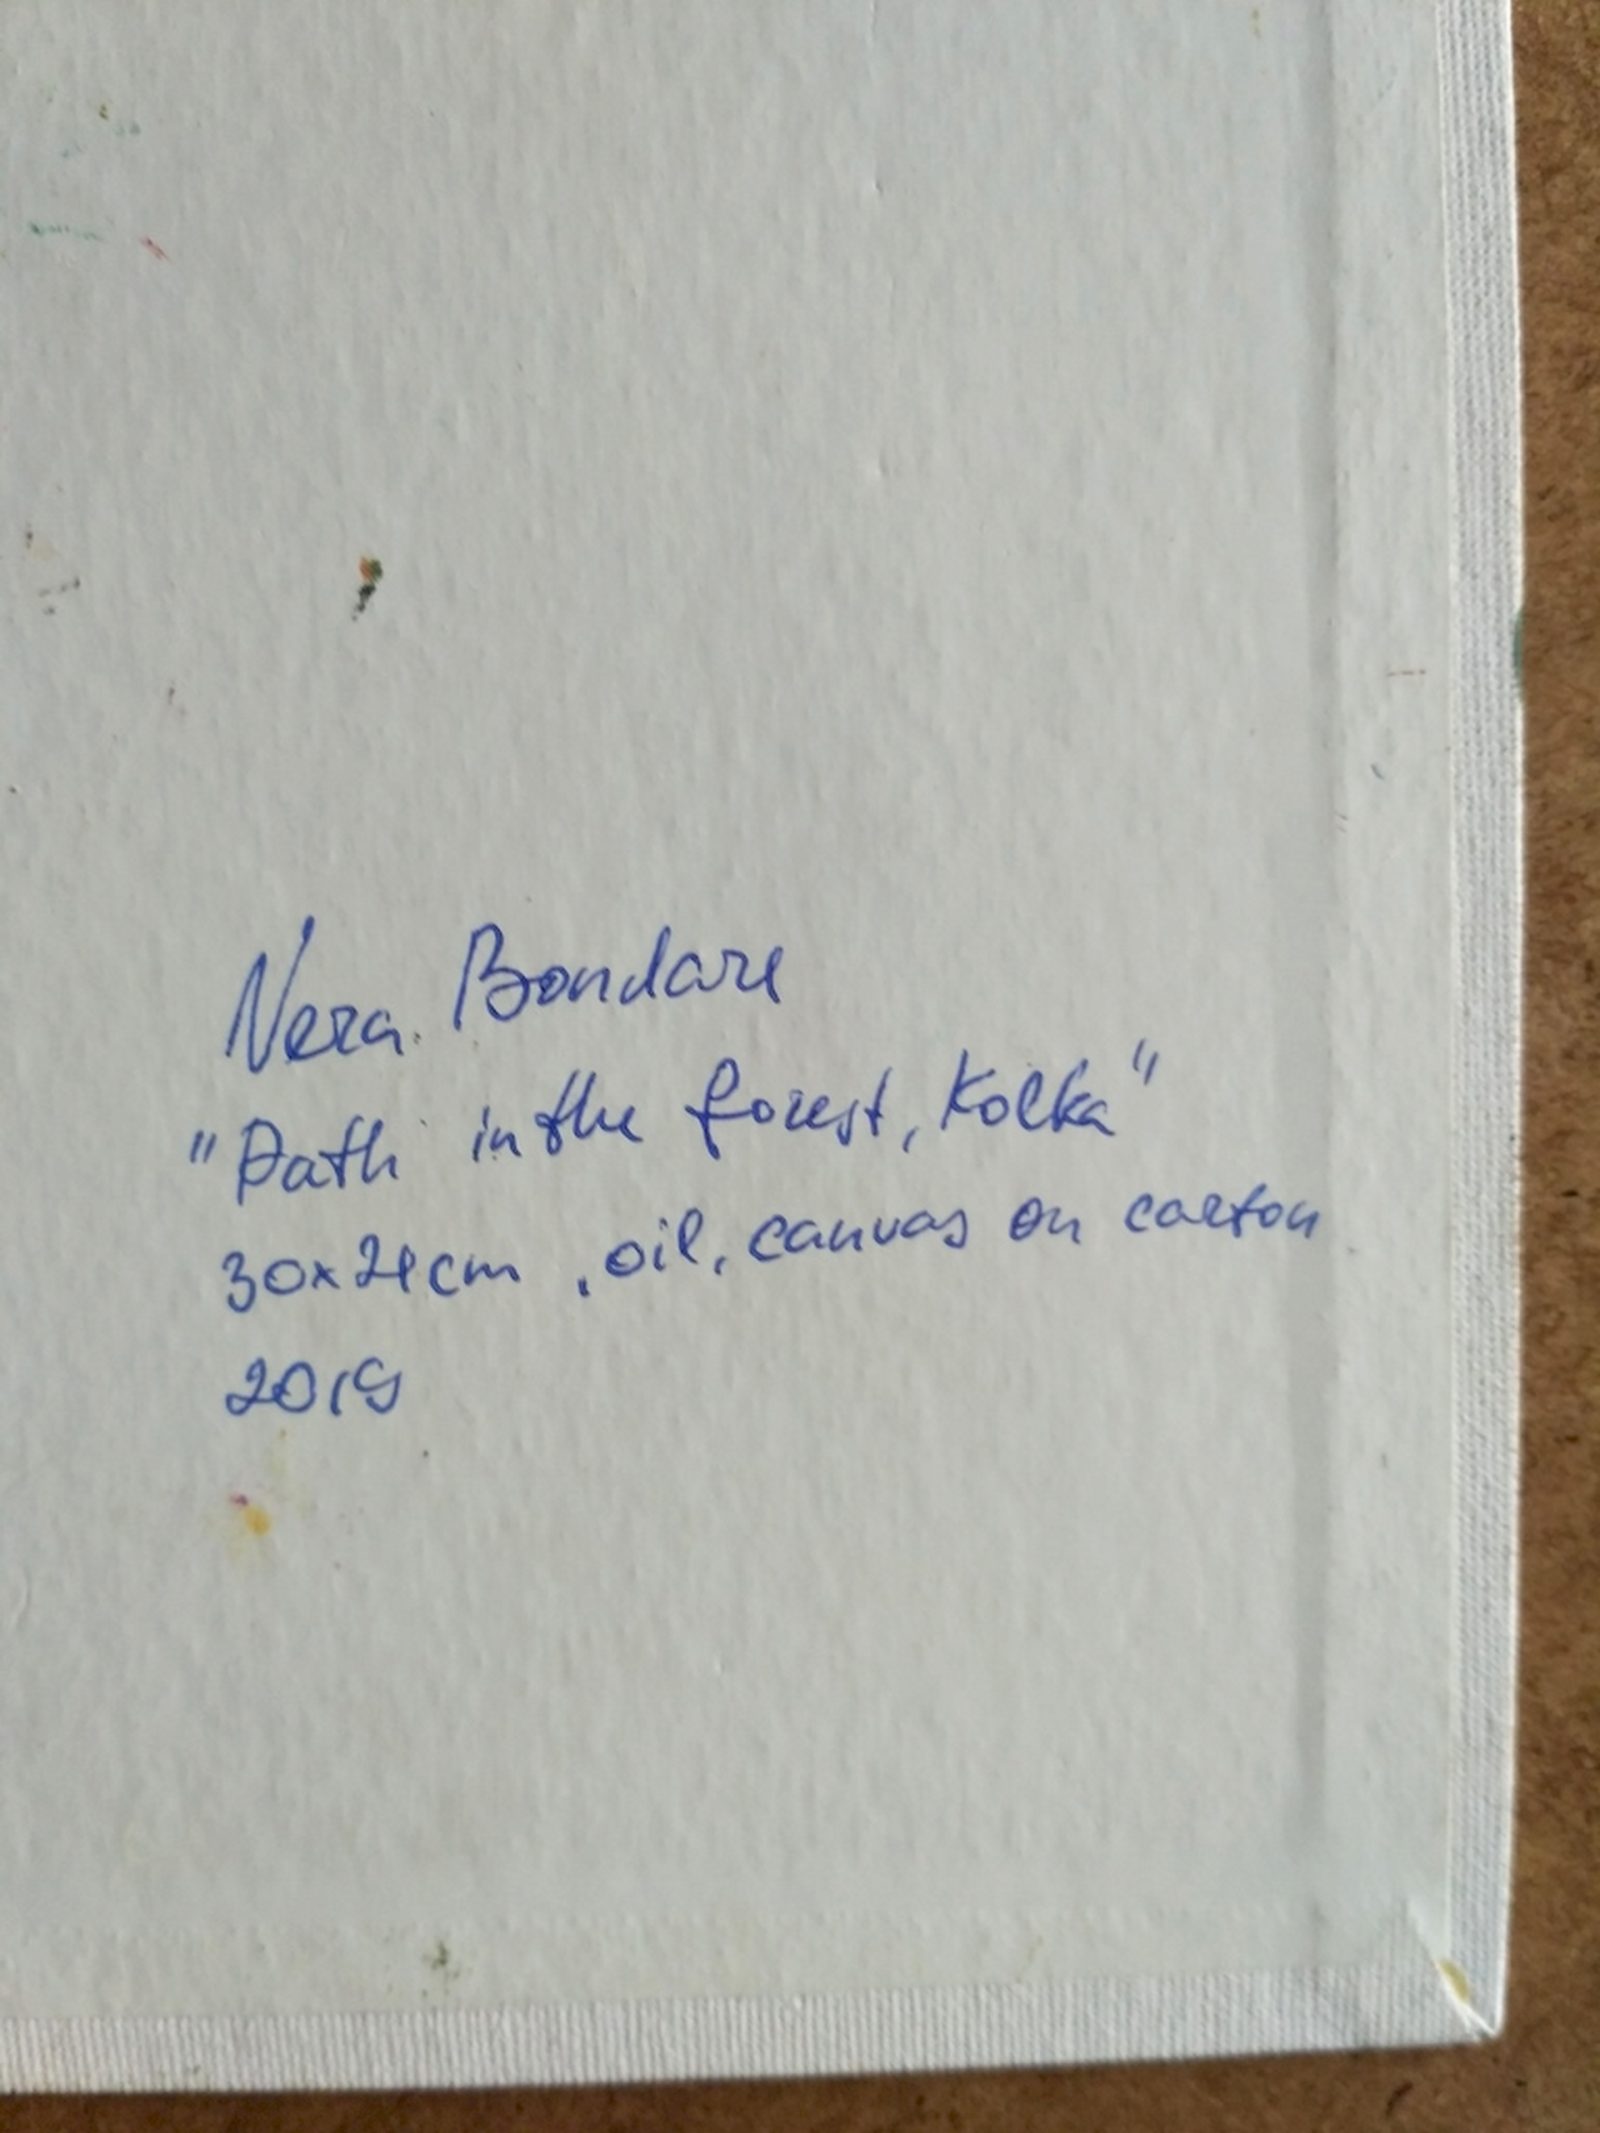 Nera Bondare
"Path in the forest, Kolka"
30x24cm, oil, canvas on carton
2019